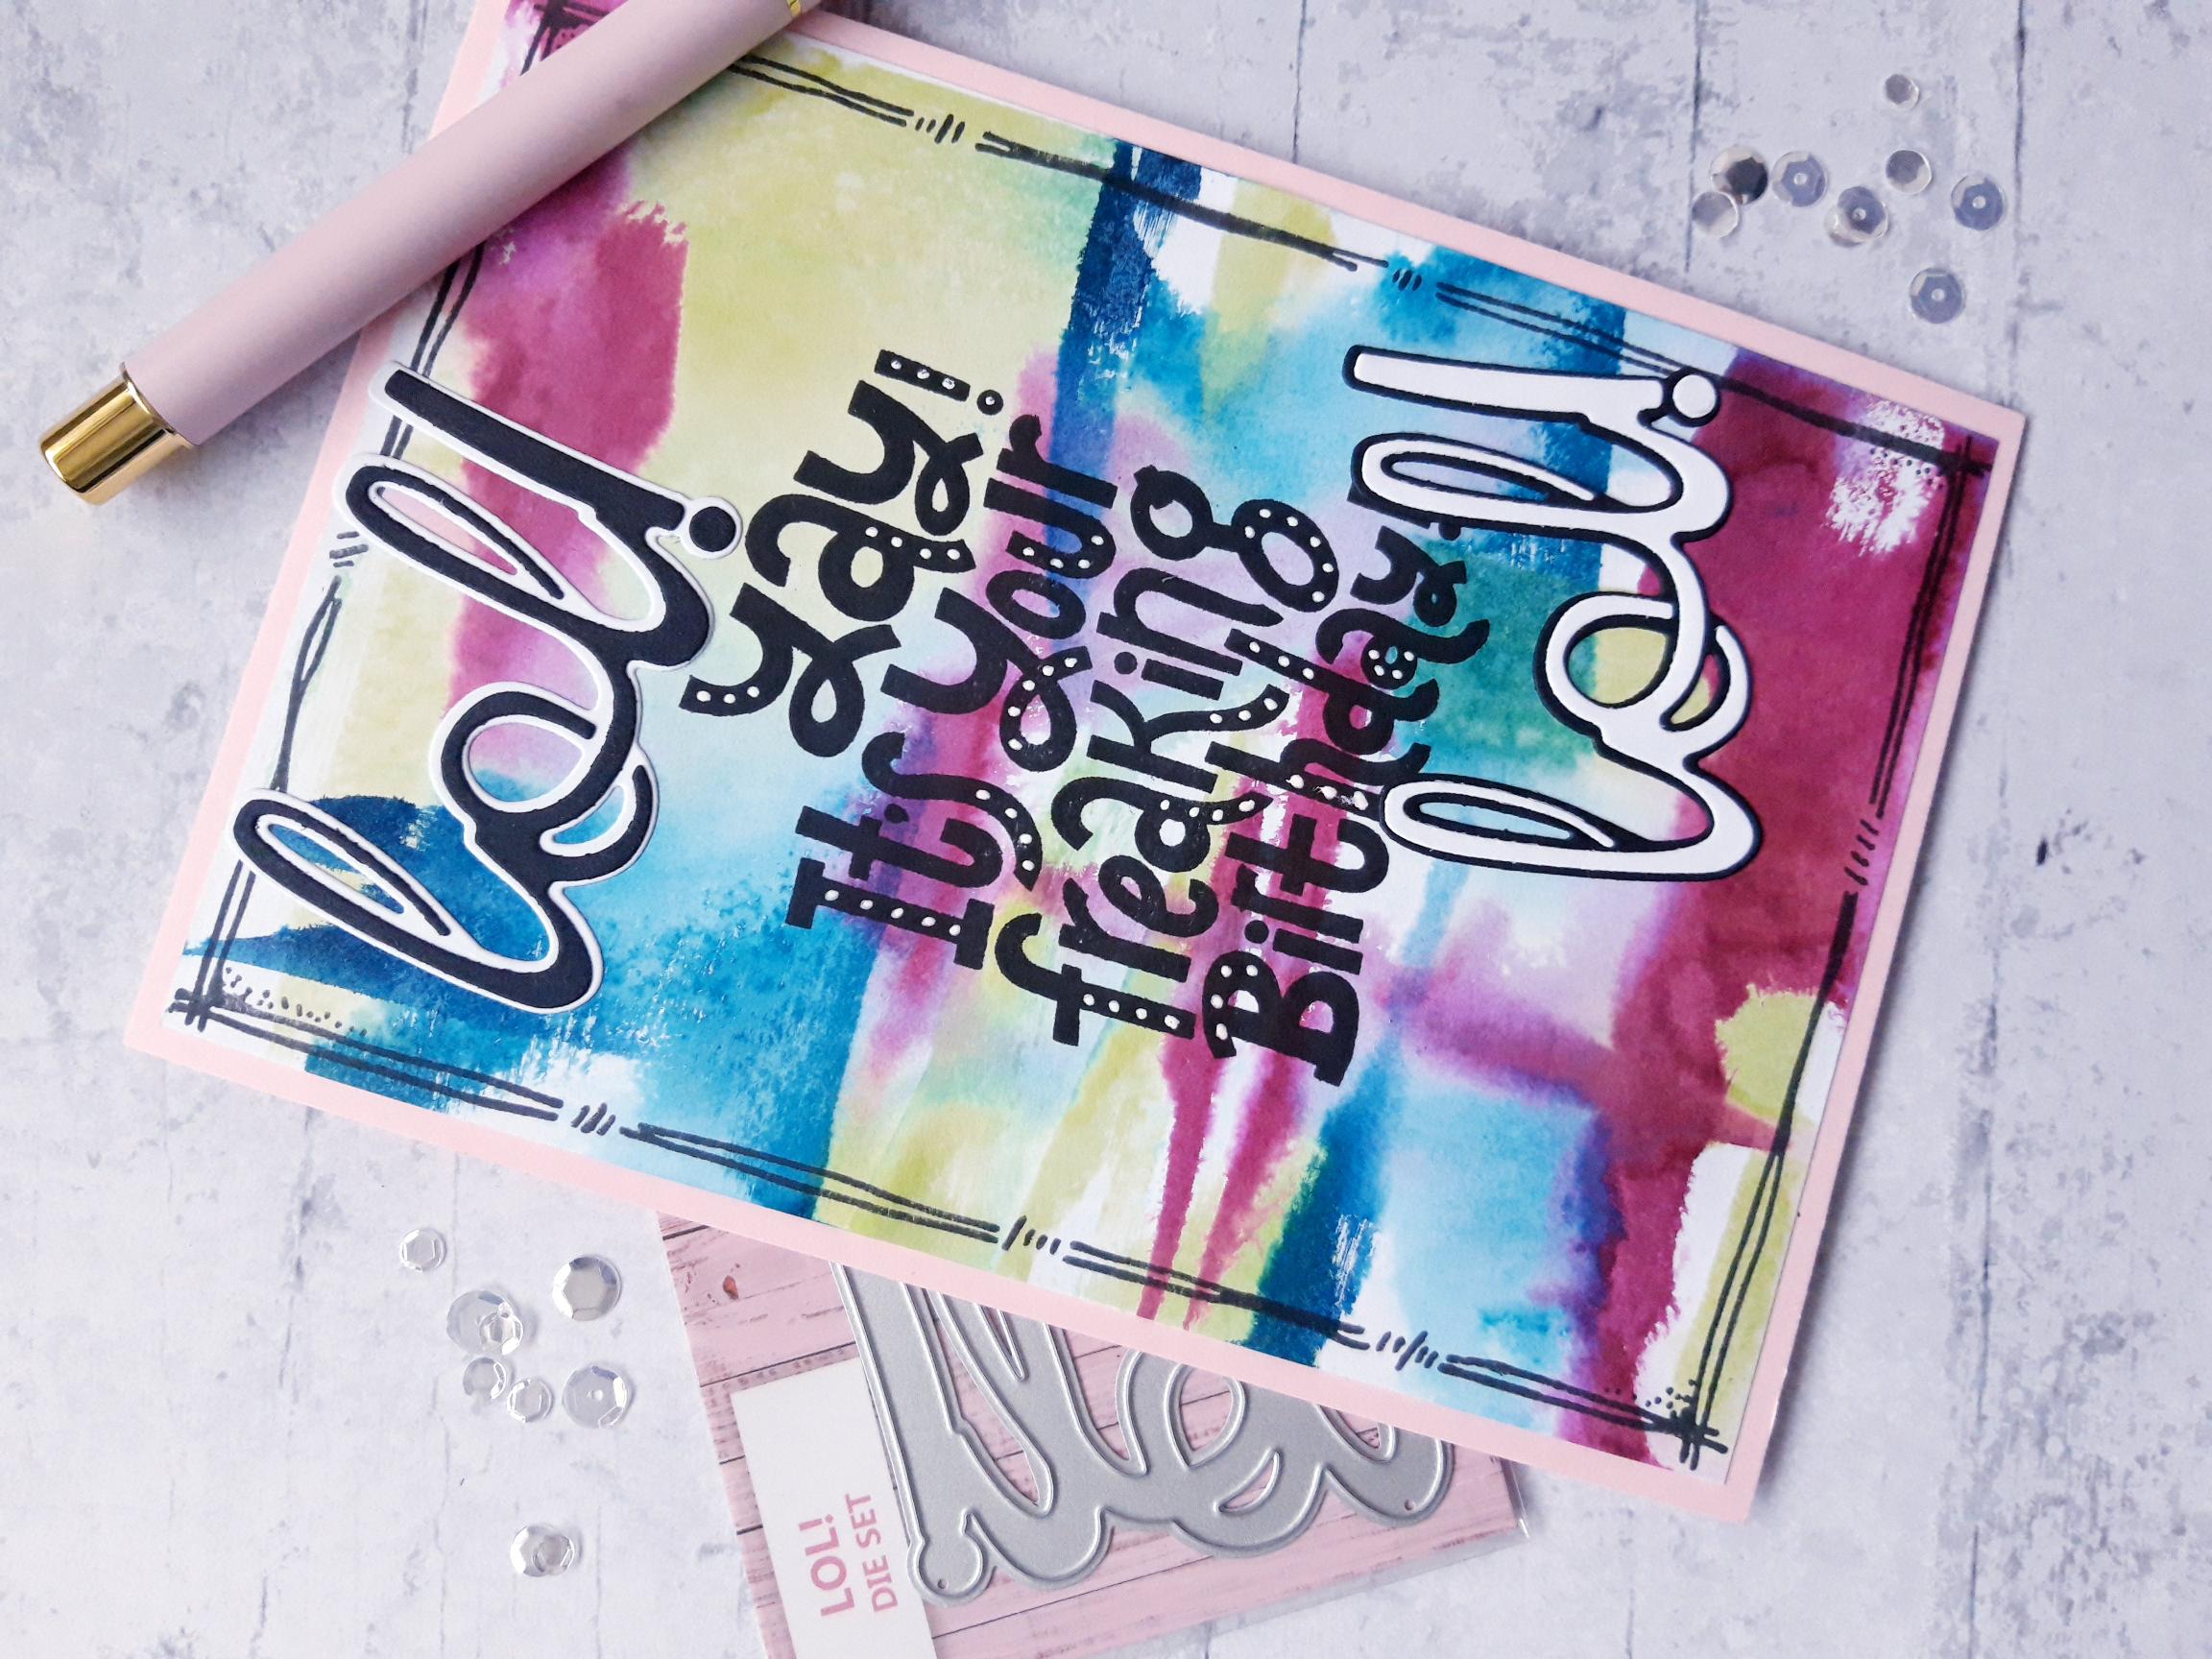 lol!
yay!
It's your
freaking
Birthday!
lol!
LOL!
DIE SET